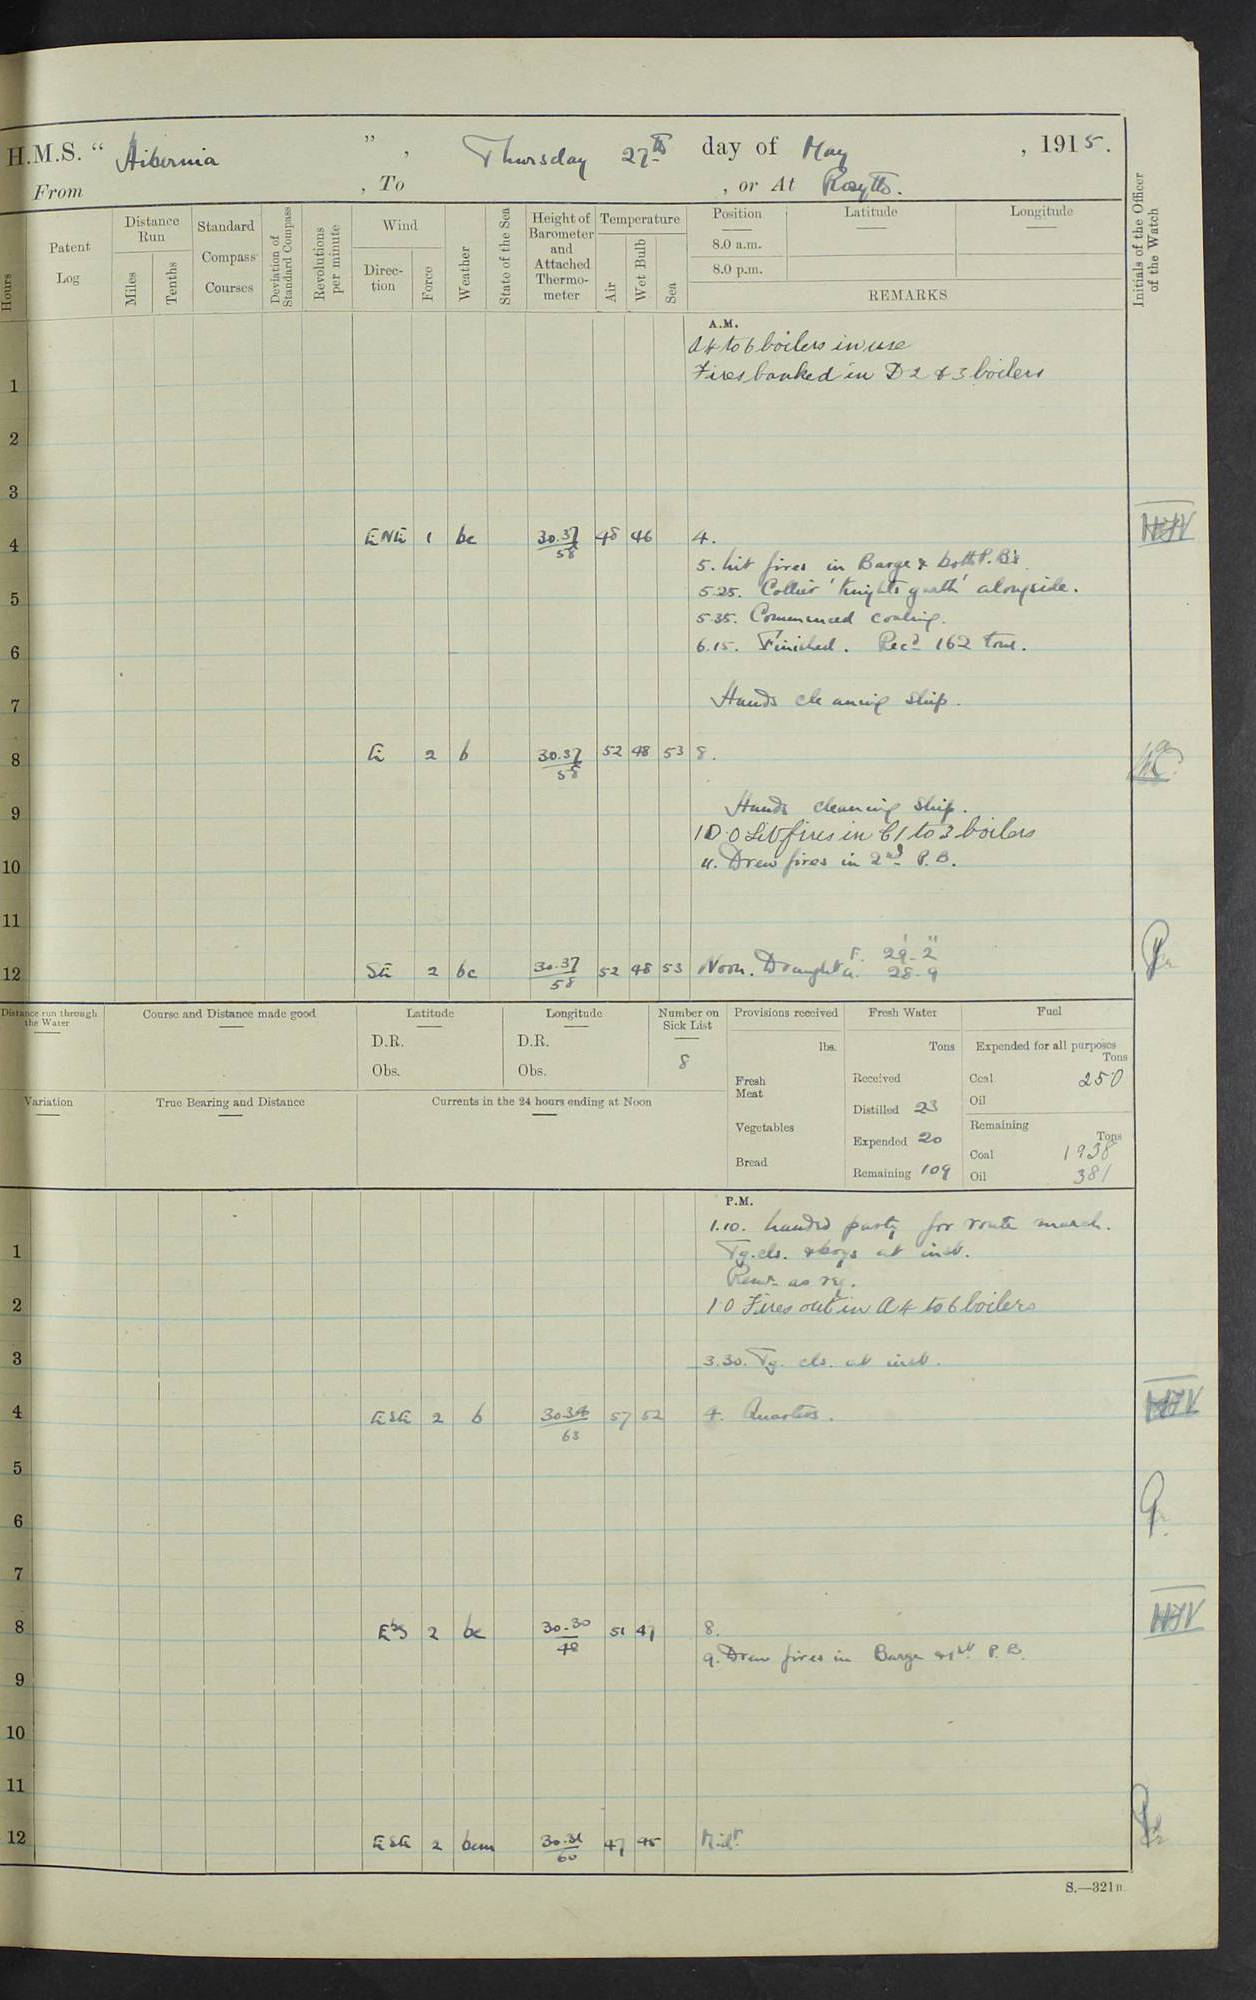 H.M.S. “ Hibernia ” , Thursday 27th day of May , 1915.
From , To , or At Rosyth.
Hours
Patent Log
Distance Run
Miles
Tenths
Standard Compass Courses
Deviation of Standard Compass
Revolutions per minute
Wind
Direction
Force
Weather
State of the Sea
Height of Barometer and Attached Thermometer
Temperature
Air
Wet Bulb
Sea
Position
8.0 a.m.
8.0 p.m.
Latitude
Longitude
REMARKS
Initials of the Officer of the Watch
A.M.
A 4 to 6 boilers in use
1 Fires banked in D 2 & 3 boilers
2
3
4 ENE 1 bc 30.37/58 48 46 4.
5. Lit fires in Barge & both P.B's.
5 5.25. Collier 'Knights garth' alongside.
5.35. Commenced coaling.
6 6.15. Finished. Recd 162 tons.
7 Hands cleaning ship.
8 E 2 b 30.37/58 52 48 53 8.
9 Hands cleaning Ship.
10.0 Lit fires in C1 to 3 boilers
10 11. Drew fires in 2nd P.B.
11
12 SE 2 bc 30.37/58 52 48 53 Noon. Draught F. 29' 2" A. 28. 9
Distance run through the Water
Course and Distance made good
Latitude
D.R.
Obs.
Longitude
D.R.
Obs.
Number on Sick List
8
Provisions received
lbs.
Fresh Meat
Vegetables
Bread
Fresh Water
Tons
Received
Distilled 23
Expended 20
Remaining 109
Fuel
Expended for all purposes
Tons
Coal 250
Oil
Remaining
Tons
Coal 1938
Oil 381
Variation
True Bearing and Distance
Currents in the 24 hours ending at Noon
P.M.
1.10. Landed party for route march.
1 Tg. cls. & boys at inst.
Remr. as rq.
2 1.0 Fires out in A 4 to 6 boilers
3 3.30. Tg. cls. at inst.
4 ESE 2 b 30.34/63 57 52 4. Quarters.
5
6
7
8 EbS 2 bc 30.30/48 51 47 8.
9. Drew fires in Barge & 1st P.B.
9
10
11
12 ESE 2 bcm 47 45 Midt.
S.—321B.